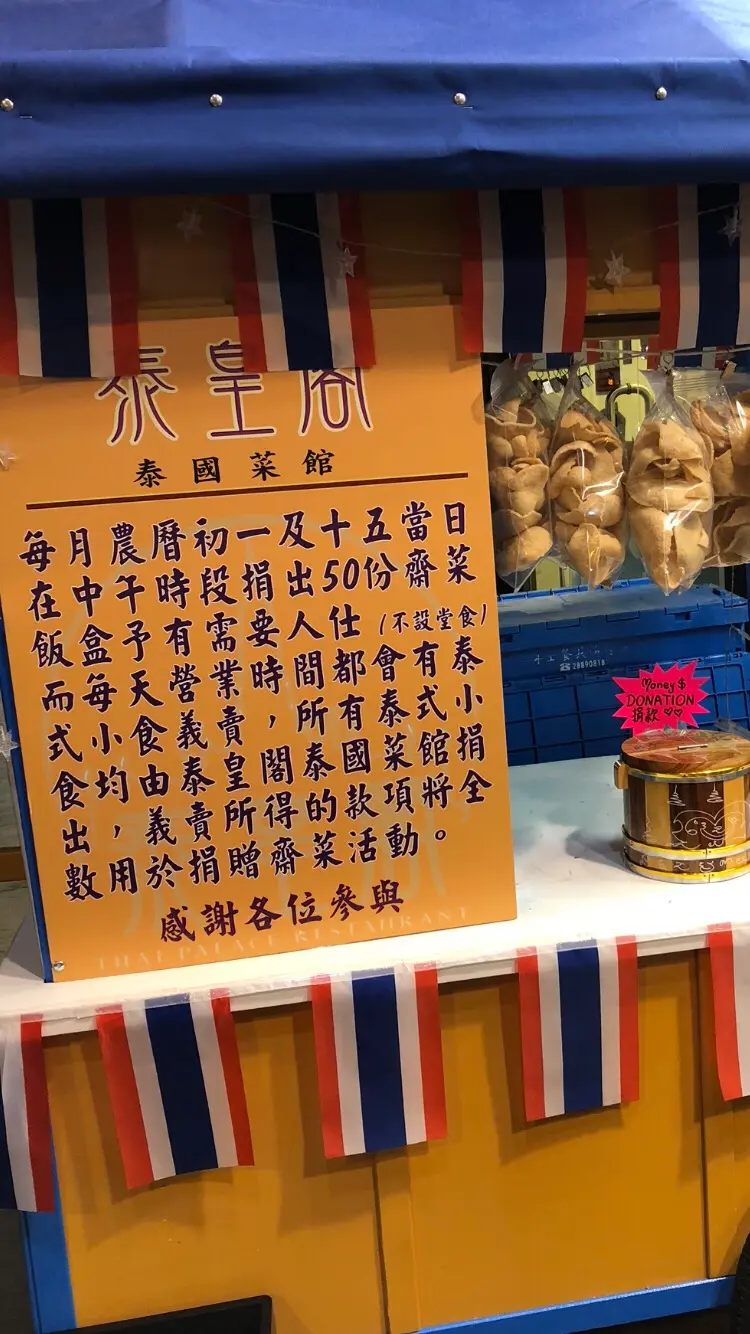 泰皇閣
泰國菜館
每月農曆初一及十五當日
在中午時段捐出50份齋菜
飯盒予有需要人仕(不設堂食)
而每天營業時間都會有泰
式小食義賣，所有泰式小
食均由泰皇閣泰國菜館捐
出，義賣所得的款項將全
數用於捐贈齋菜活動。
感謝各位參與
THAI PALACE RESTAURANT
Money $
DONATION
捐款